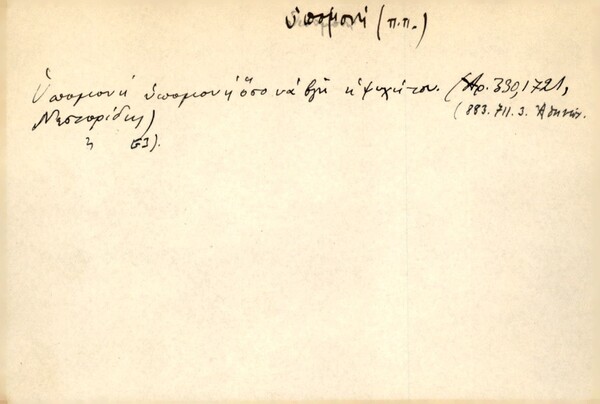 ὑπομονή (π.π.)
Ὑπομονή ὑπομονή ὅσο νά βγῆ ἡ ψυχή του. (Ἀρ. 330, 1721,
Νεστορίδης)
(883. 711. 3. Ἀθηνῶν.